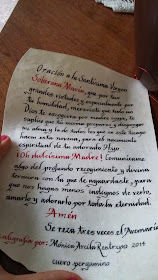 Oración a la Santísima Virgen
Soberana María, que por tus
grandes virtudes y especialmente por
tu humildad, mereciste que todo un
Dios te escogiera por madre suya, te
suplico que tú misma prepares y dispongas
mi alma y la de todos los que en este tiempo
hacen esta novena, para el nacimiento
espiritual de tu adorado Hijo
¡Oh dulcísima Madre! Comunícame
algo del profundo recogimiento y divina
ternura con la que lo aguardaste, para
que nos hagas menos indignos de verlo,
amarlo y adorarlo por toda la eternidad.
Amén
Se reza tres veces el Avemaría
caligrafía por: Mónica Arcila Restrepo, 2014
cuero-pergamino